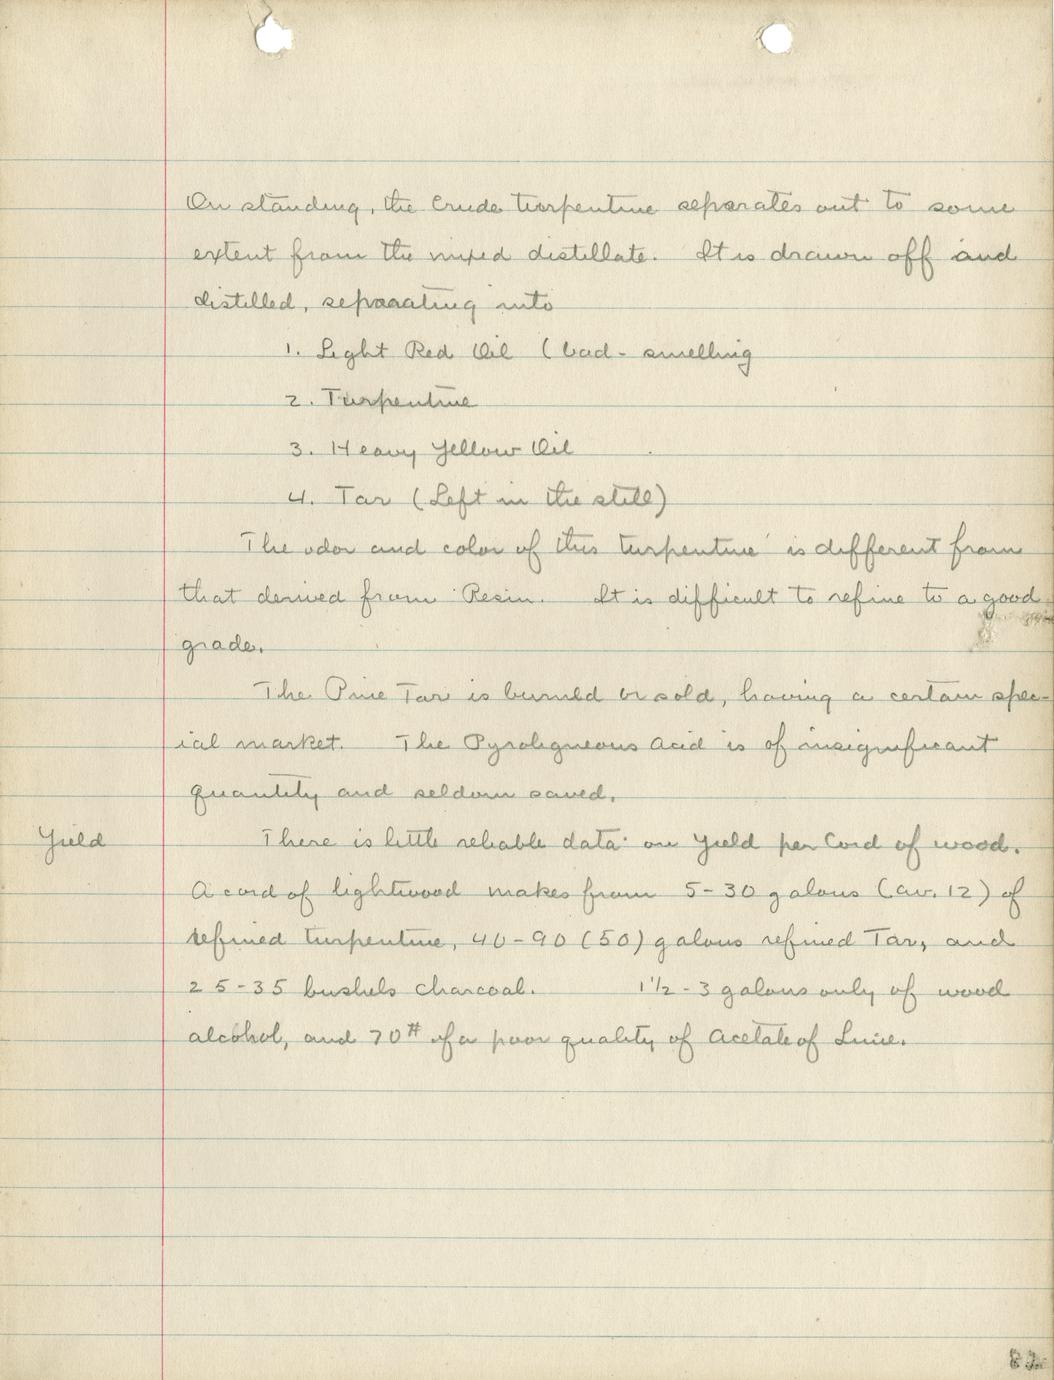 On standing, the Crude turpentine separates out to some
extent from the mixed distillate. It is drawn off and
distilled, separating into
1. Light Red Oil (bad-smelling
2. Turpentine
3. Heavy Yellow Oil
4. Tar (Left in the still)
The odor and color of this turpentine is different from
that derived from Resin. It is difficult to refine to a good
grade.
The Pine Tar is burned or sold, having a certain spec-
ial market. The Pyroligneous Acid is of insignificant
quantity and seldom saved.
Yield There is little reliable data on Yield per Cord of wood.
A cord of lightwood makes from 5-30 galons (av. 12) of
refined turpentine, 40-90 (50) galons refined Tar, and
25-35 bushels charcoal. 1½-3 galons only of wood
alcohol, and 70# of a poor quality of Acetate of Lime.